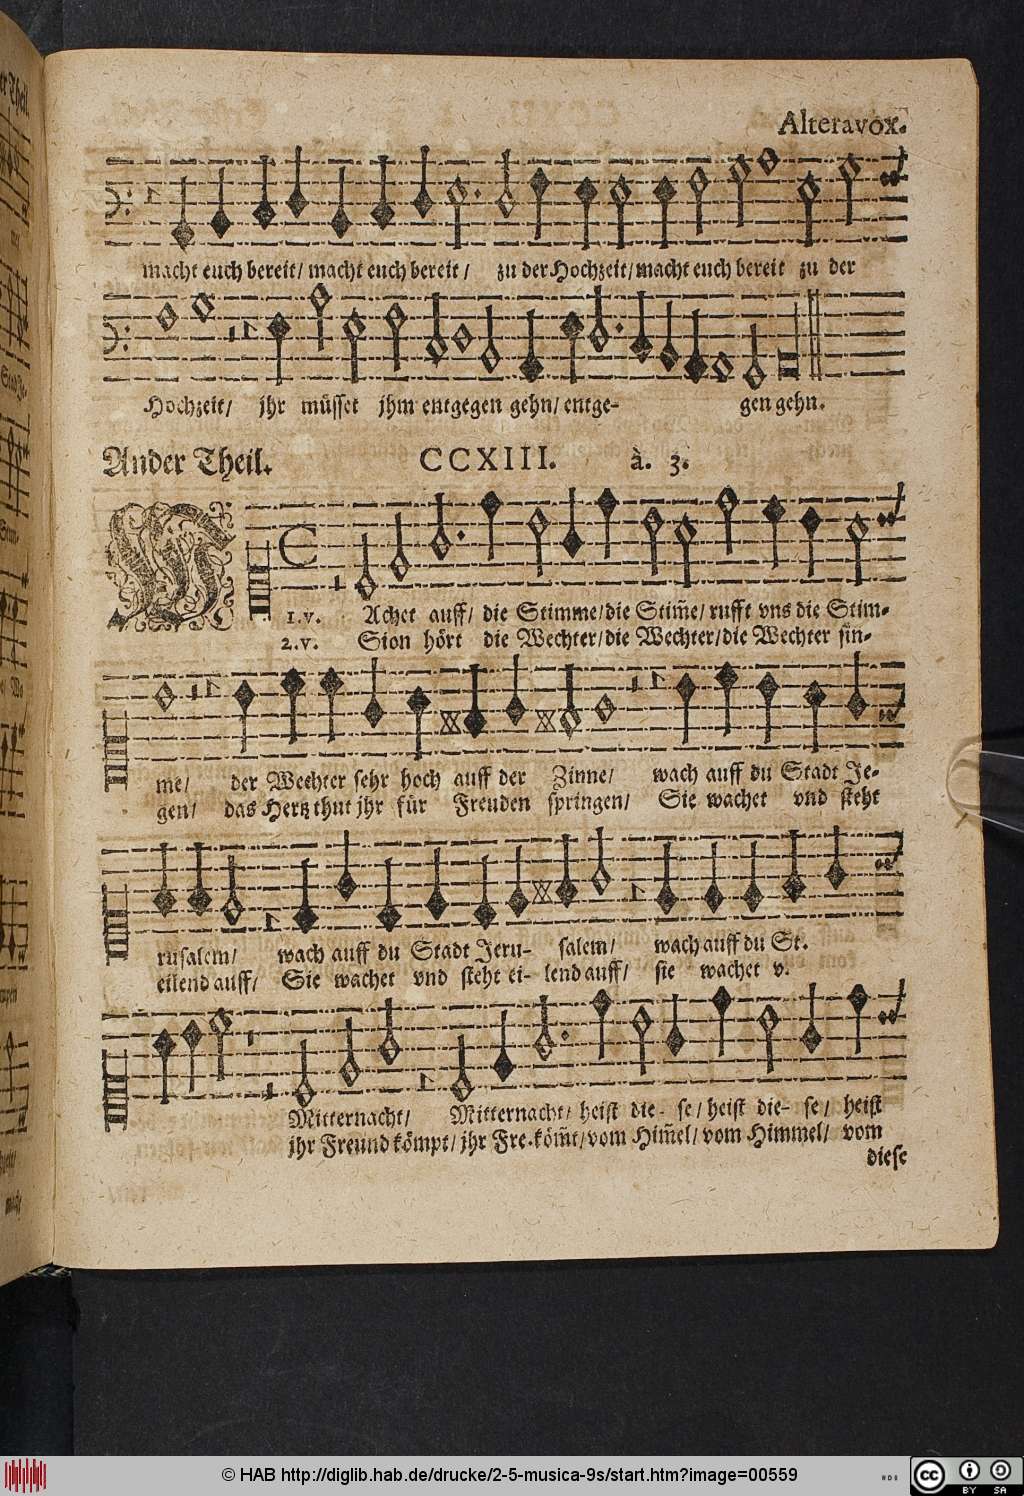 Alteravox.
macht euch bereit/ macht euch bereit/ zu der Hochzeit/ macht euch bereit zu der
Hochzeit/ jhr müsset jhm entgegen gehn/ entge- gen gehn.
Ander Theil. CCXIII. à. 3.
1.v. WAchet auff/ die Stimme/ die Stim̃e/ rufft vns die Stim-
2.v. Sion hört die Wechter/ die Wechter/ die Wechter sin-
me/ der Wechter sehr hoch auff der Zinne/ wach auff du Stadt Je-
gen/ das Hertz thut jhr für Freuden springen/ Sie wachet vnd steht
rusalem/ wach auff du Stadt Jeru- salem/ wach auff du St.
eilend auff/ Sie wachet vnd steht ei- lend auff/ sie wachet v.
Mitternacht/ Mitternacht/ heist die- se/ heist die- se/ heist
jhr Freund kömpt/ jhr Fre. köm̃t/ vom Him̃el/ vom Himmel/ vom
diese
© HAB http://diglib.hab.de/drucke/2-5-musica-9s/start.htm?image=00559
cc BY SA